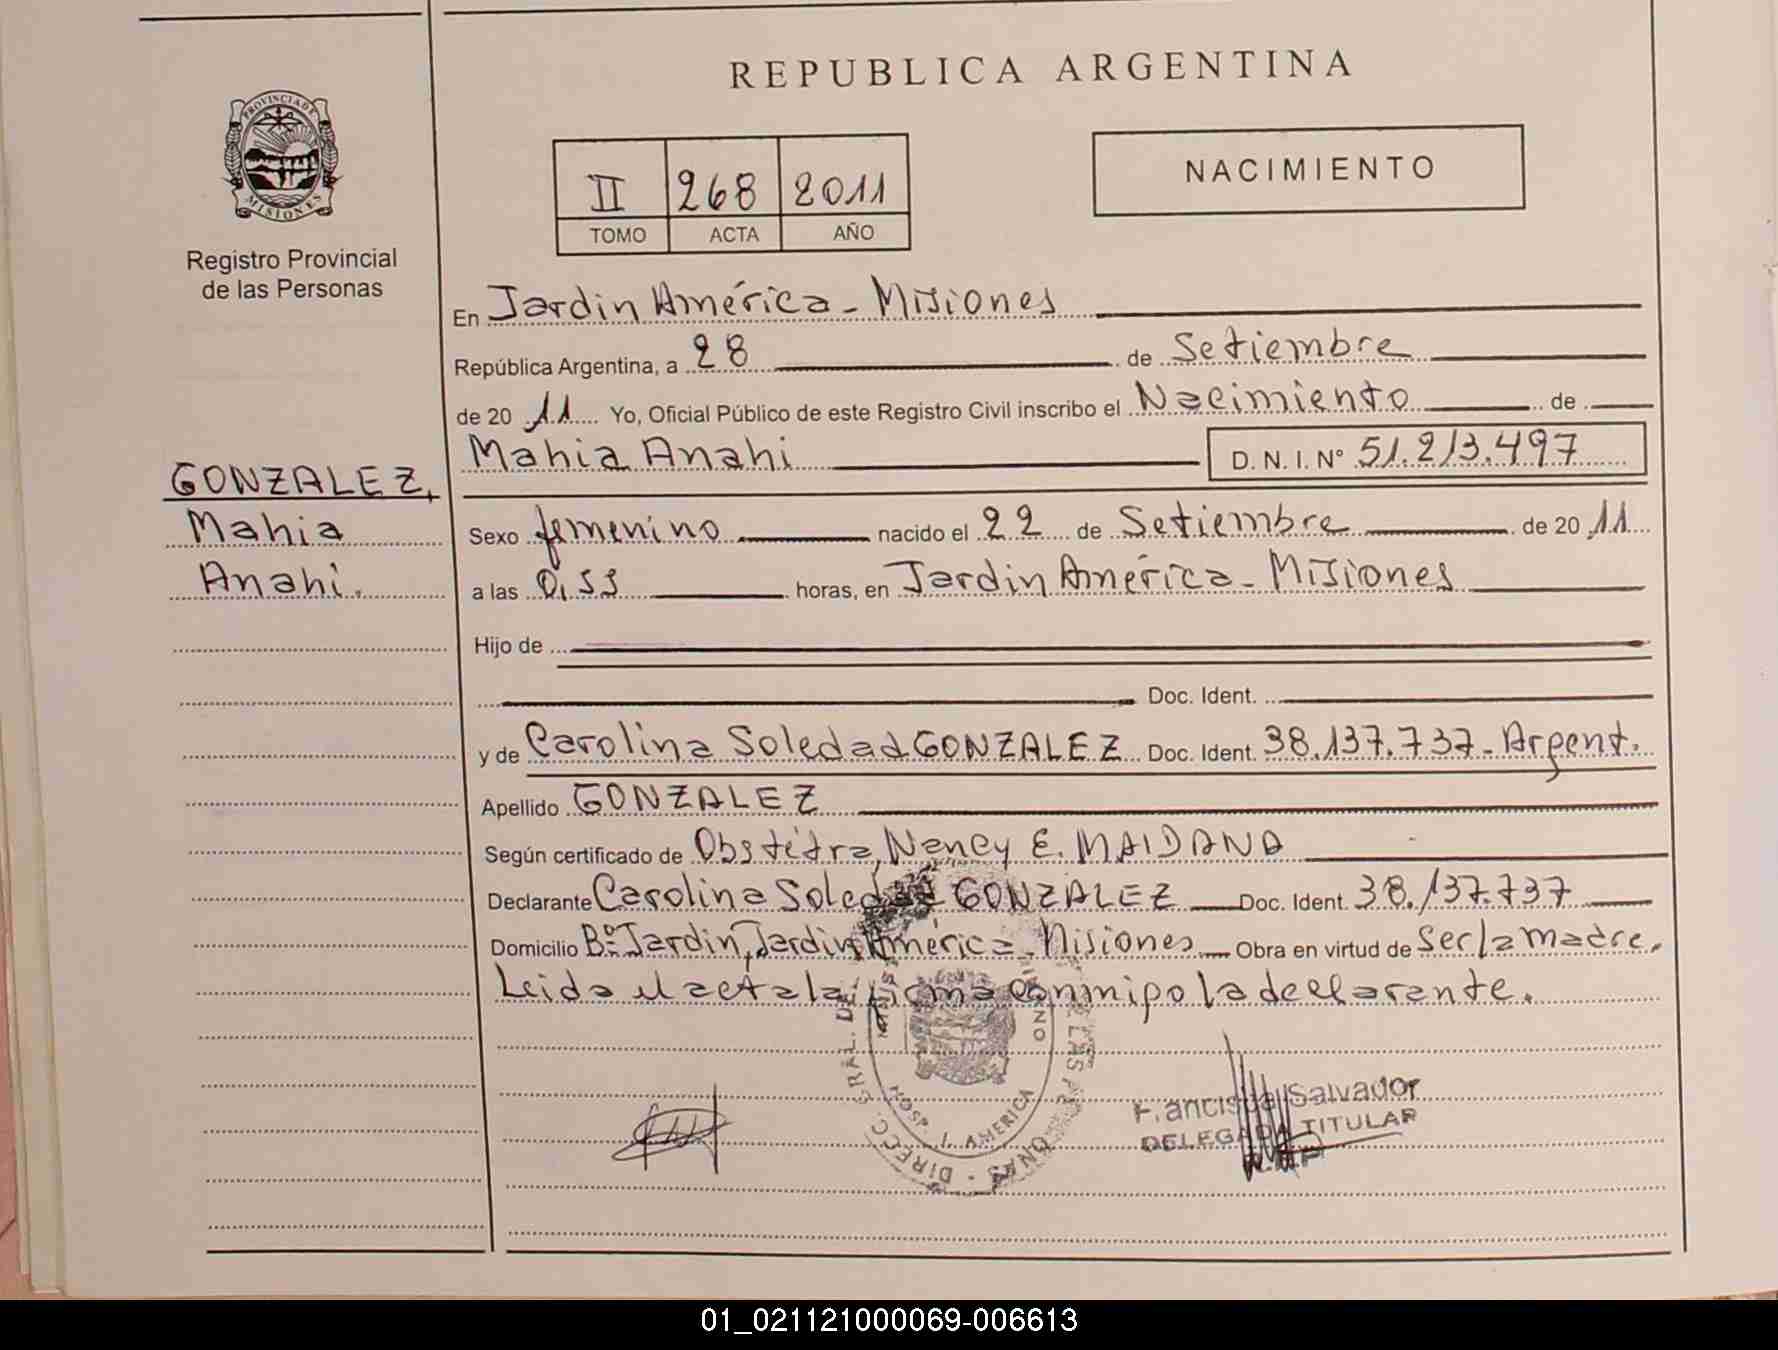 REPUBLICA ARGENTINA
PROVINCIA DE MISIONES
Registro Provincial
de las Personas
II 268 2011
TOMO ACTA AÑO
NACIMIENTO
En Jardin América - Misiones
República Argentina, a 28 de Setiembre
de 20 11 Yo, Oficial Público de este Registro Civil inscribo el Nacimiento de
Mahia Anahi D. N. I. Nº 51.213.497
GONZALEZ,
Mahia
Anahi.
Sexo femenino nacido el 22 de Setiembre de 20 11
a las 0,53 horas, en Jardin América - Misiones
Hijo de
Doc. Ident.
y de Carolina Soledad GONZALEZ Doc. Ident. 38.137.737 - Argent.
Apellido GONZALEZ
Según certificado de Obstétra, Nancy E. MAIDANA
Declarante Carolina Soledad GONZALEZ Doc. Ident. 38.137.737
Domicilio Bº Jardin, Jardin América - Misiones Obra en virtud de Ser la madre.
Leida el acta la firma conmipo la declarante.
DIRECC. GRAL. DE LAS
HOSP. J. AMERICA
Salvador
DELEGADA TITULAR
01_021121000069-006613